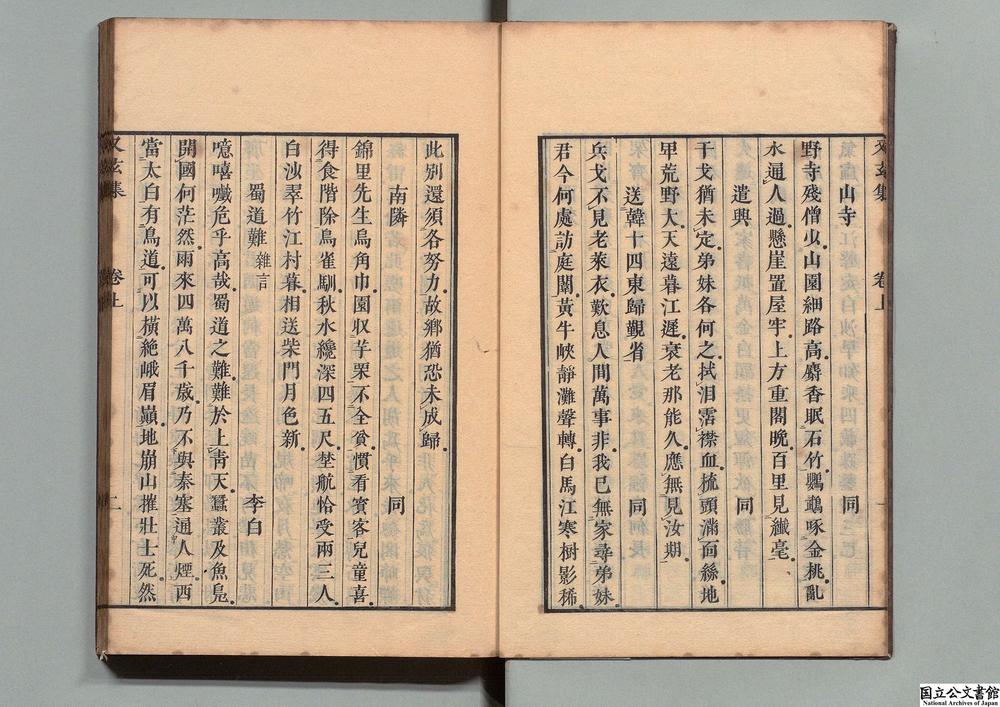 山寺 同
野寺殘僧少山園細路高麝香眠石竹鸚鵡啄金桃亂
水通人過懸崖置屋牢上方重閣晚百里見纖毫
遣興 同
干戈猶未定弟妹各何之拭淚霑襟血梳頭滿面絲地
甲荒野大天遠暮江遲衰老那能久應無見汝期
送韓十四東歸覲省 同
兵戈不見老萊衣歎息人間萬事非我已無家尋弟妹
君今何處訪庭闈黃牛峽靜灘聲轉白馬江寒樹影稀
又玄集 卷上 二
此別還須各努力故鄉猶恐未成歸
南隣 同
錦里先生烏角巾園収芋栗不全貧慣看賓客兒童喜
得食階除鳥雀馴秋水纔深四五尺埜航恰受兩三人
白沙翠竹江村暮相送柴門月色新
蜀道難 雜言 李白
噫嘻嚱危乎高哉蜀道之難難於上青天蠶叢及魚鳧
開國何茫然爾來四萬八千歲乃不與秦塞通人煙西
當太白有鳥道可以橫絕峨眉巔地崩山摧壯士死然
又玄集 卷上 二
国立公文書館
National Archives of Japan